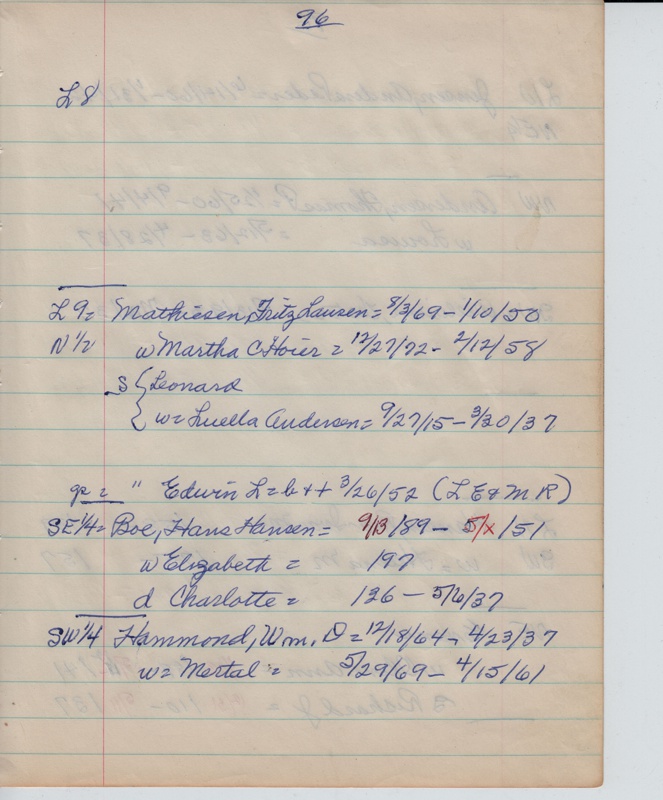 96
L 8
L 9 = Mathiesen, Fritz Lausen = 8/3/69 - 1/10/50
N 1/2 w Martha C Hoier = 12/27/72 - 2/12/58
S { Leonard
w = Luella Andersen = 9/27/15 - 3/30/37
gs = " Edwin L = b + + 3/26/52 (L E & M R)
SE 1/4 = Boe, Hans Hansen = 9/13/89 - 5/x/51
w Elizabeth = 197
d Charlotte = 126 - 5/6/37
SW 1/4 Hammond, Wm. D = 12/18/64 - 4/23/37
w = Mertal = 5/29/69 - 4/15/61